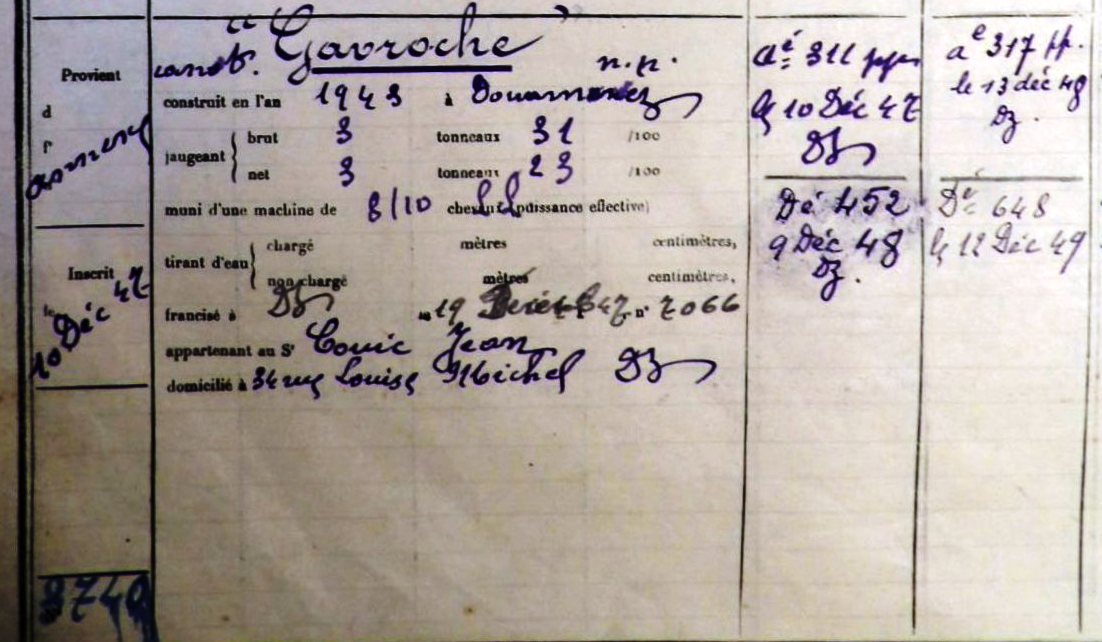 Provient
d
f'
armement
Inscrit
le 10 Déc 47
8740
canot. "Gavroche" n.p.
construit en l'an 1943 à Douarnenez
jaugeant { brut 3 tonneaux 31 /100
net 3 tonneaux 23 /100
muni d'une machine de 8/10 chevaux (puissance effective)
tirant d'eau { chargé mètres centimètres,
non chargé mètres centimètres,
francisé à DZ le 19 47 n° 7066
appartenant au Sr Couic Jean
domicilié à 34 rue Louise Michel DZ
aé 311
le 10 Déc 47
DZ
Dé 452
9 Déc 48
DZ.
aé 317 pp.
le 13 déc 48
DZ.
Dé 648
le 12 Déc 49